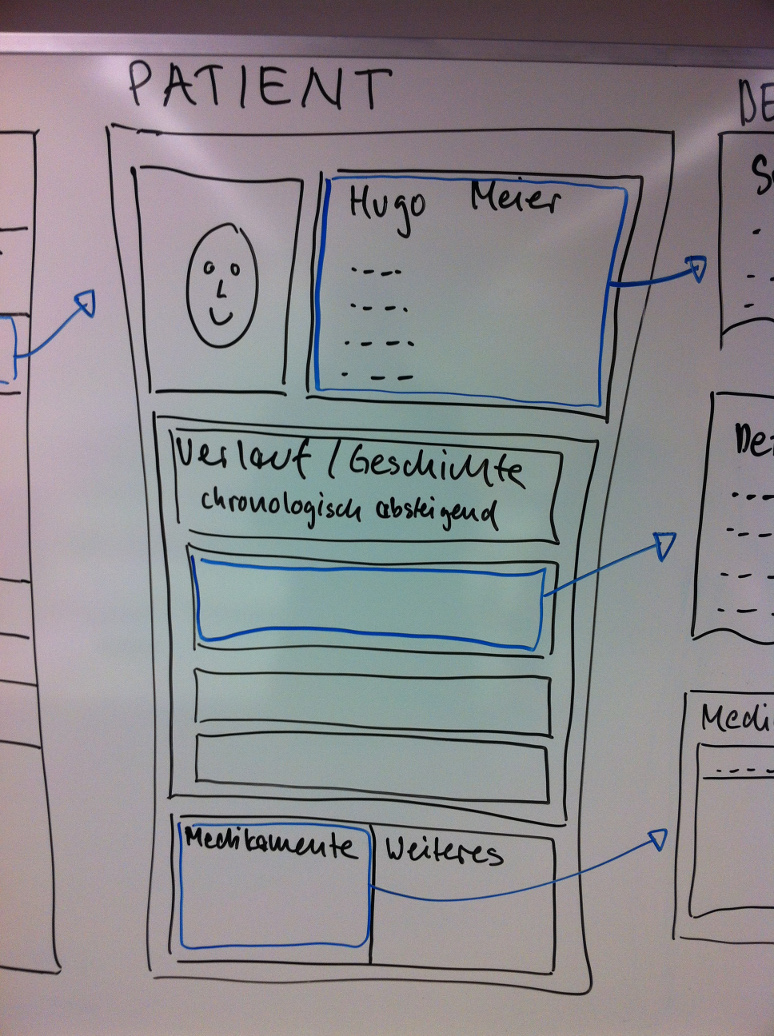 PATIENT
Hugo Meier
Verlauf / Geschichte
chronologisch absteigend
Medikamente
Weiteres